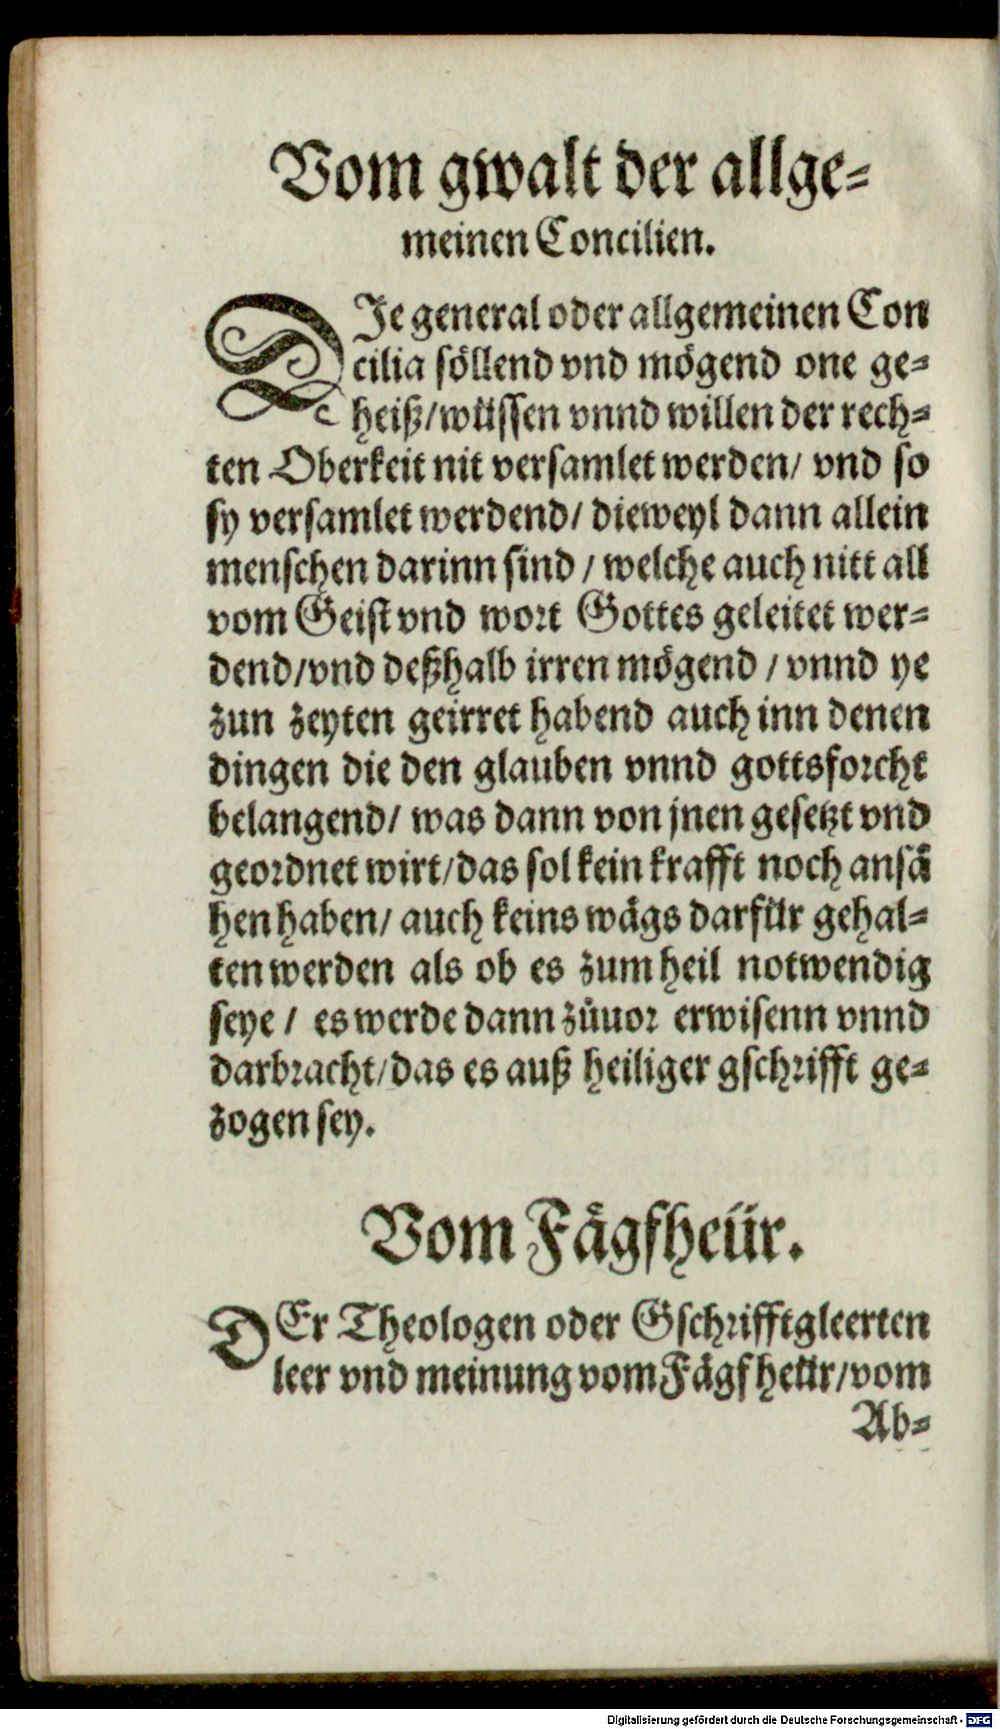 Vom gwalt der allge-
meinen Concilien.
DJe general oder allgemeinen Con
cilia söllend vnd mögend one ge-
heiß/wüssen vnnd willen der rech-
ten Oberkeit nit versamlet werden/ vnd so
sy versamlet werdend/ dieweyl dann allein
menschen darinn sind / welche auch nitt all
vom Geist vnd wort Gottes geleitet wer-
dend/vnd deßhalb irren mögend / vnnd ye
zun zeyten geirret habend auch inn denen
dingen die den glauben vnnd gottsforcht
belangend/ was dann von jnen gesetzt vnd
geordnet wirt/das sol kein krafft noch ansä
hen haben/ auch keins wägs darfür gehal-
ten werden als ob es zum heil notwendig
seye / es werde dann zůuor erwisenn vnnd
darbracht/das es auß heiliger gschrifft ge-
zogen sey.
Vom Fägfheür.
DEr Theologen oder Gschrifftgleerten
leer vnd meinung vom Fägfheür/vom
Ab-
Digitalisierung gefördert durch die Deutsche Forschungsgemeinschaft - DFG